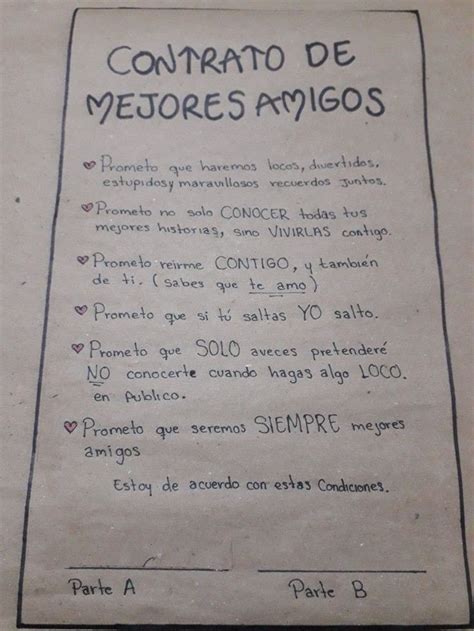 CONTRATO DE
MEJORES AMIGOS
Prometo que haremos locos, divertidos,
estupidos y maravillosos recuerdos juntos.
Prometo no solo CONOCER todas tus
mejores historias, sino VIVIRLAS contigo.
Prometo reirme CONTIGO, y también
de ti. (Sabes que te amo)
Prometo que si tú saltas YO salto.
Prometo que SOLO aveces pretenderé
NO conocerte cuando hagas algo LOCO.
en Publico.
Prometo que seremos SIEMPRE mejores
amigos
Estoy de acuerdo con estas Condiciones.
Parte A Parte B